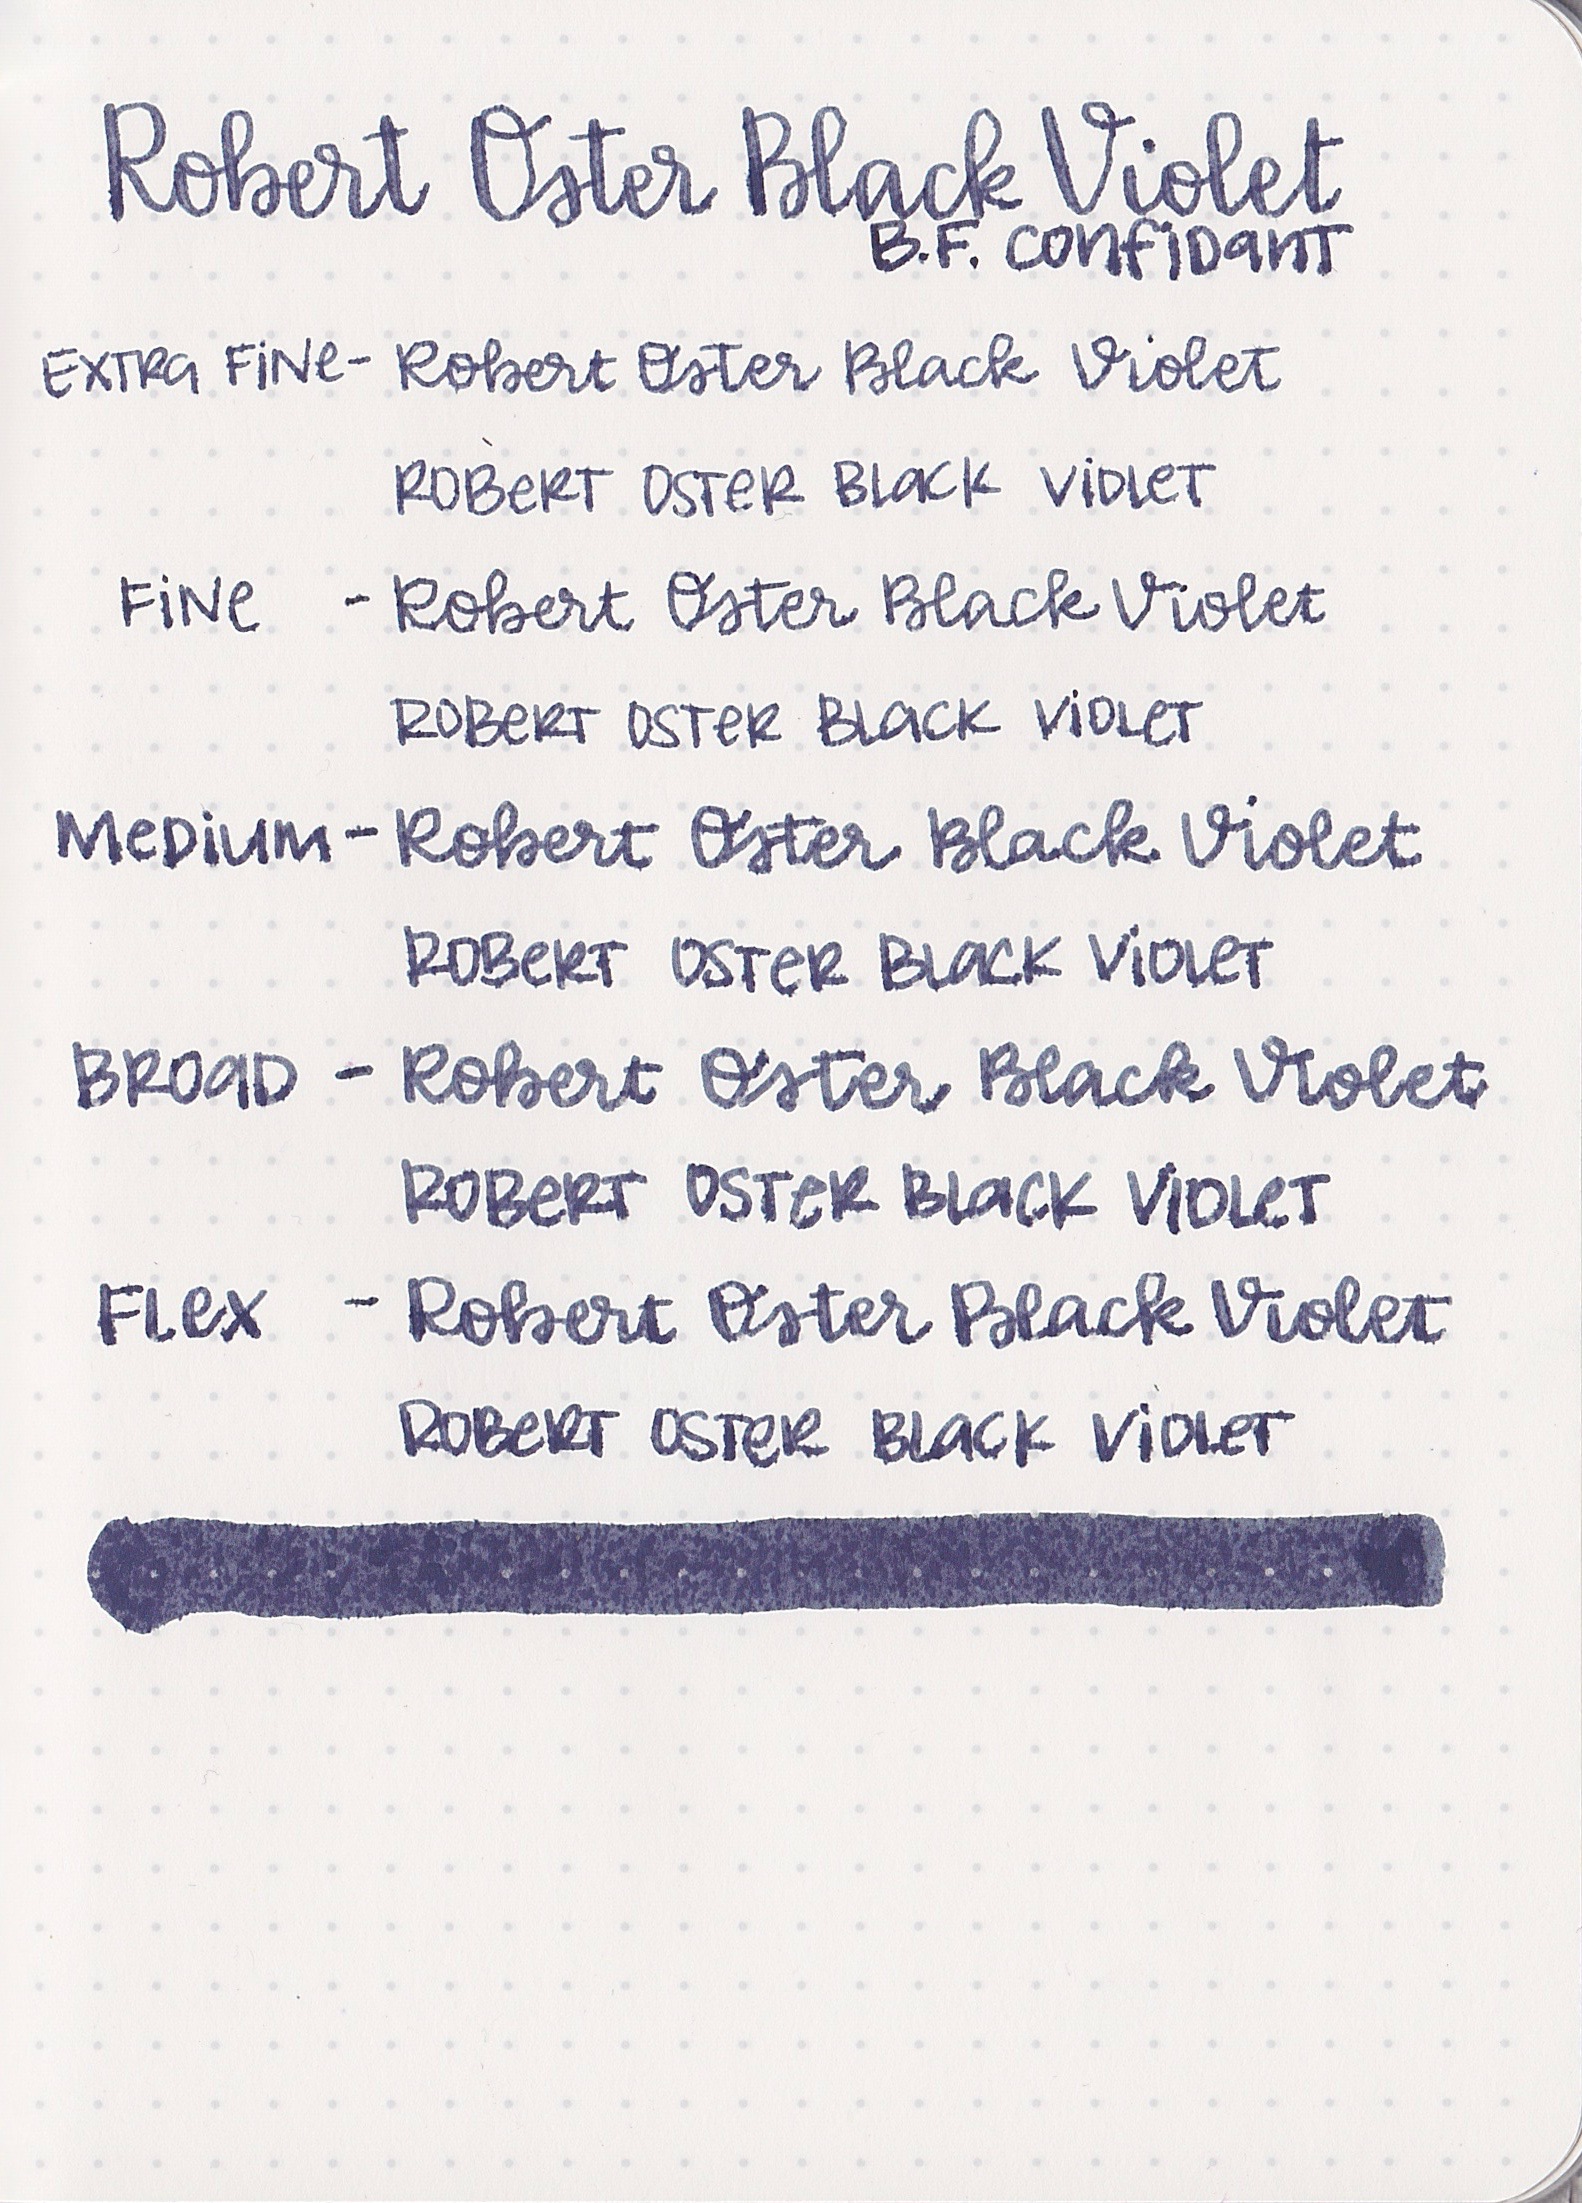 Robert Oster Black Violet
B.F. Confidant
Extra Fine - Robert Oster Black Violet
Robert Oster Black Violet
Fine - Robert Oster Black Violet
Robert Oster Black Violet
Medium - Robert Oster Black Violet
Robert Oster Black Violet
Broad - Robert Oster Black Violet
Robert Oster Black Violet
Flex - Robert Oster Black Violet
Robert Oster Black Violet